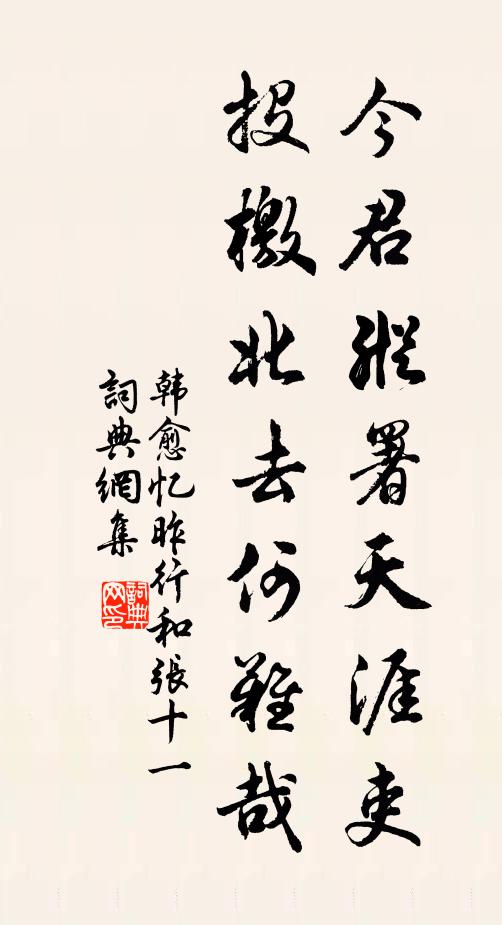 今君縱署天涯吏
投檄北去何難哉
韩愈忆昨行和張十一
詞典網集
詞典网印